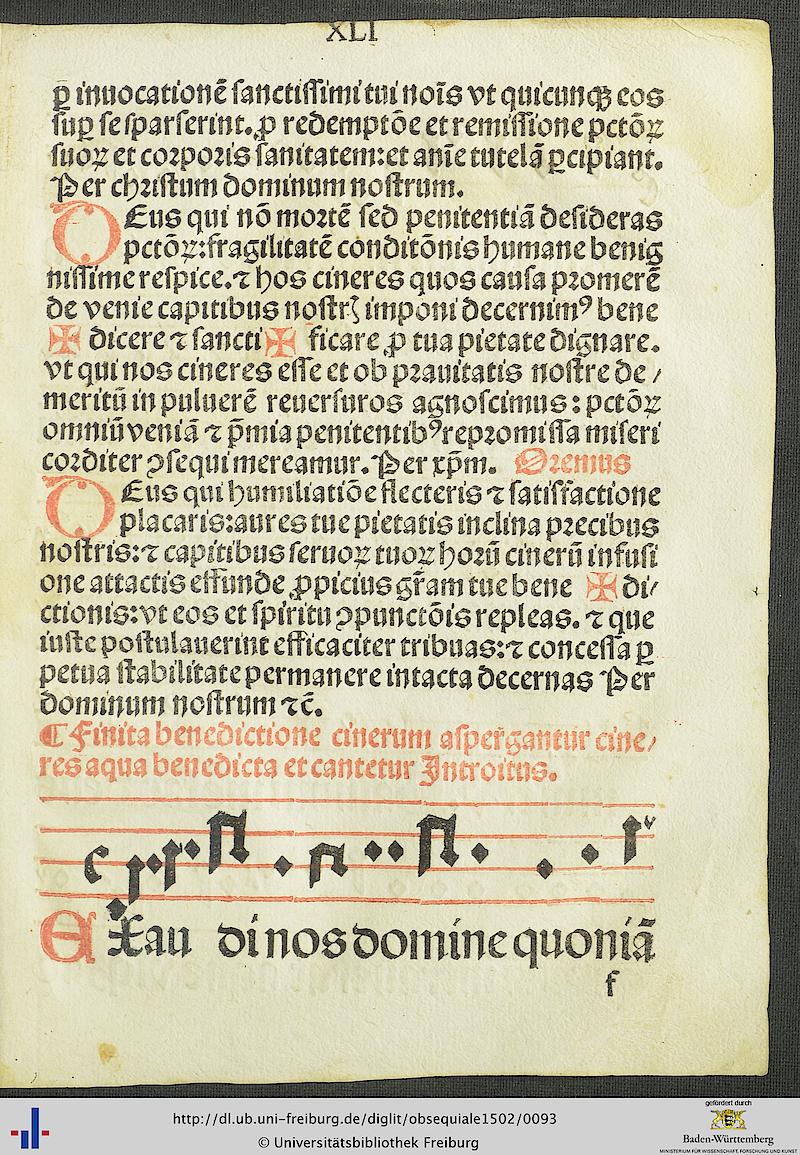 XLI
ꝑ inuocationē ſanctiſſimi tui noīs vt quicunqꝫ eos
ſuꝑ ſe ſparſerint.ꝓ redemptōe et remiſſione pctōꝝ
ſuoꝝ et coꝛpoꝛis ſanitatem:et anīe tutelā ꝑcipiant.
Per chꝛiſtum dominum noſtrum.
DEus qui nō moꝛtē ſed penitentiā deſideras
pctōꝝ:fragilitatē conditōnis humane benig
niſſime reſpice.⁊ hos cineres quos cauſa pꝛomerē
de venie capitibus noſtrꝭ imponi decernimꝰ bene
✠ dicere ⁊ ſancti ✠ ficare ꝓ tua pietate dignare.
vt qui nos cineres eſſe et ob pꝛauitatis noſtre de /
meritū in puluerē reuerſuros agnoſcimus: pctōꝝ
omniū veniā ⁊ p̄mia penitentibꝰ repꝛomiſſa miſeri
coꝛditer ꝯſequi mereamur. Per xp̄m. Oremus
DEus qui humiliatiōe flecteris ⁊ ſatiſfactione
placaris:aures tue pietatis inclina pꝛecibus
noſtris:⁊ capitibus ſeruoꝝ tuoꝝ hoꝛū cinerū infuſi
one attactis effunde ꝓpicius gr̄am tue bene ✠ di/
ctionis:vt eos et ſpiritu ꝯpunctōis repleas. ⁊ que
iuſte poſtulauerint efficaciter tribuas:⁊ conceſſa ꝑ
petua ſtabilitate permanere intacta decernas Per
dominum noſtrum ⁊c̄.
¶ Finita benedictione cinerum aſpergantur cine/
res aqua benedicta et cantetur Introitus.
EXau di nos domine quoniā
f
http://dl.ub.uni-freiburg.de/diglit/obsequiale1502/0093
© Universitätsbibliothek Freiburg
gefördert durch
Baden-Württemberg
MINISTERIUM FÜR WISSENSCHAFT, FORSCHUNG UND KUNST